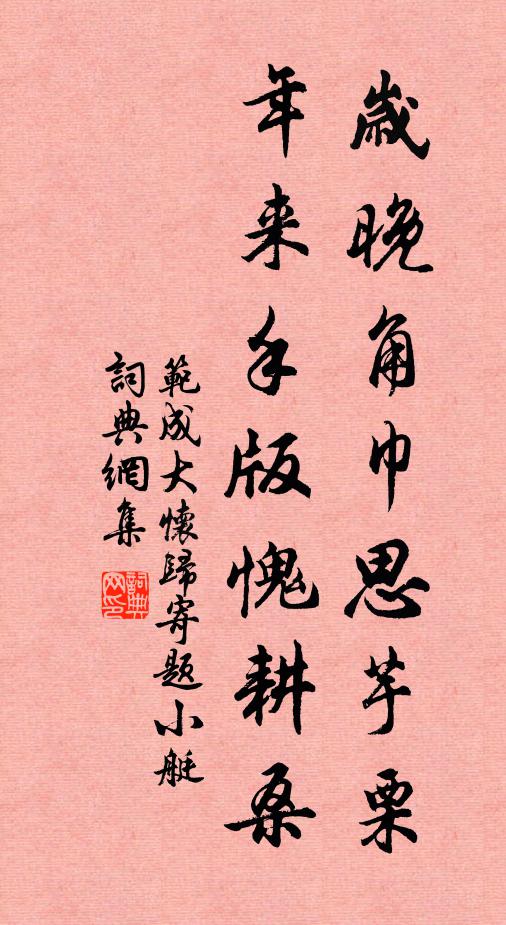 歲晚角巾思芋栗
年来手版愧耕桑
範成大懷歸寄題小艇
詞典網集
詞典网印